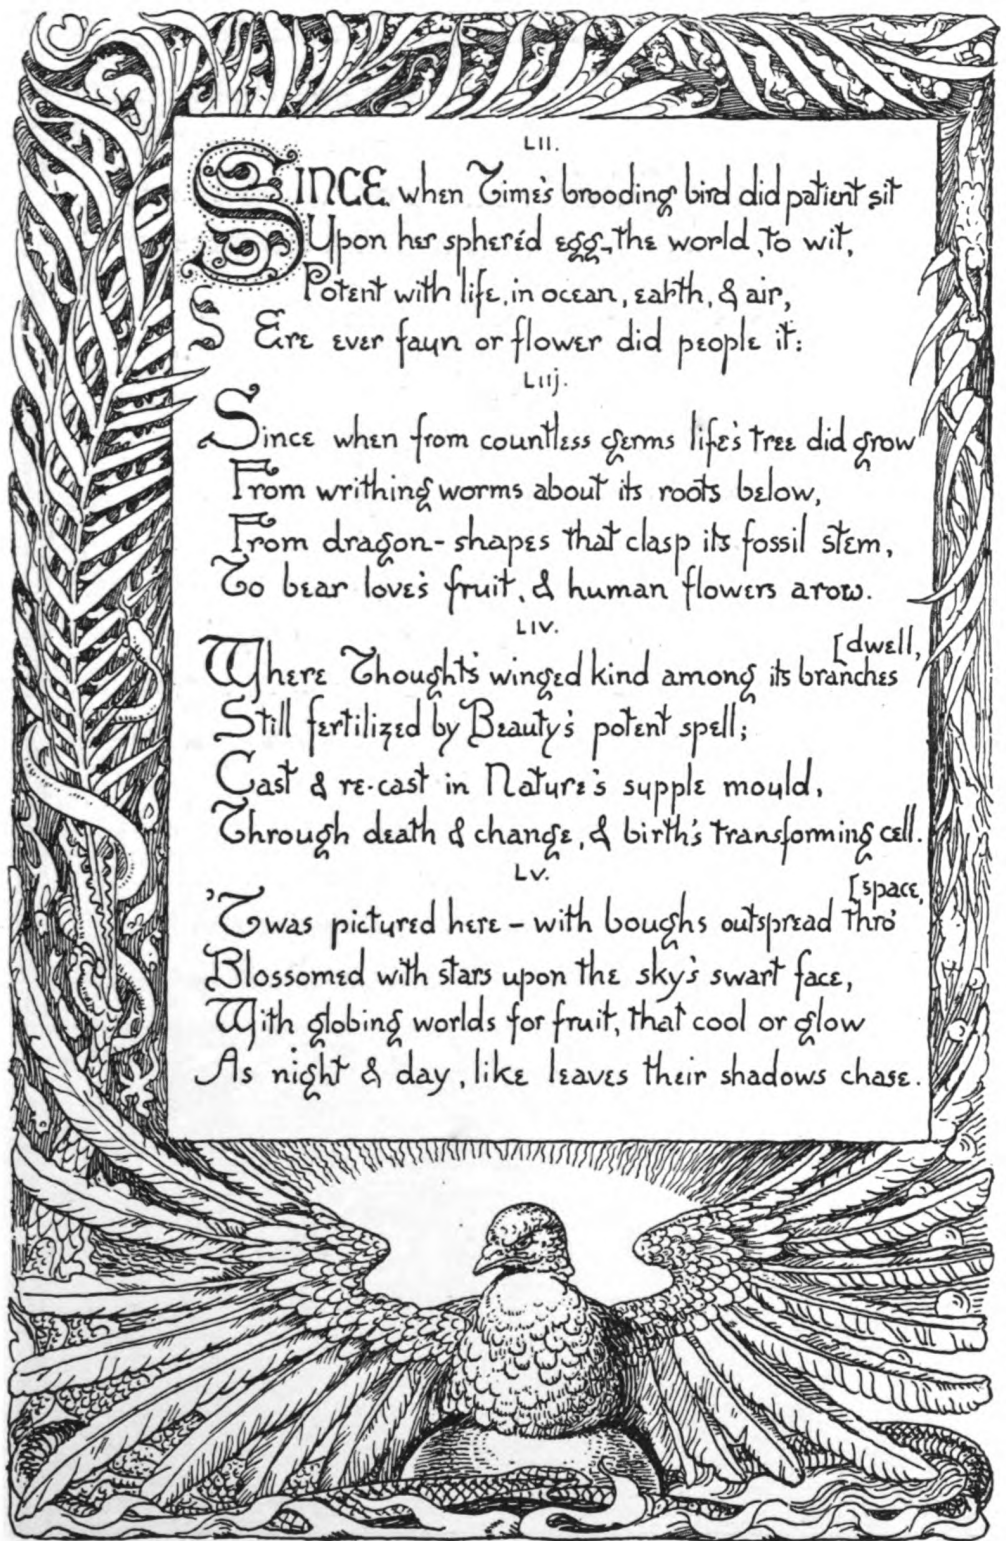 LII.
SINCE when Time's brooding bird did patient sit
Upon her spheréd egg, the world, to wit,
Potent with life, in ocean, earth, & air,
S Ere ever faun or flower did people it:
LIIj.
Since when from countless germs life's tree did grow
From writhing worms about its roots below,
From dragon-shapes that clasp its fossil stem,
To bear love's fruit, & human flowers arow.
LIV.
[dwell,
Where Thought's winged kind among its branches
Still fertilized by Beauty's potent spell;
Cast & re-cast in Nature's supple mould,
Through death & change, & birth's transforming cell.
LV.
[space,
'Twas pictured here – with boughs outspread thro'
Blossomed with stars upon the sky's swart face,
With globing worlds for fruit, that cool or glow
As night & day, like leaves their shadows chase.